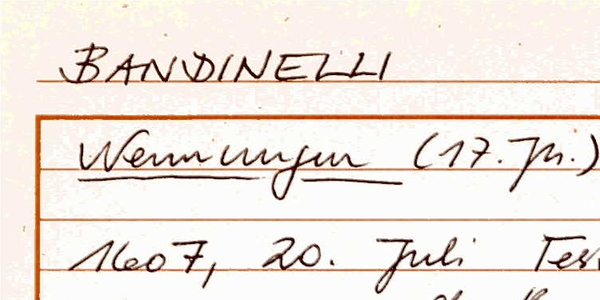 BANDINELLI
Nennungen (17. Jh.)
1607, 20. Juli Tes